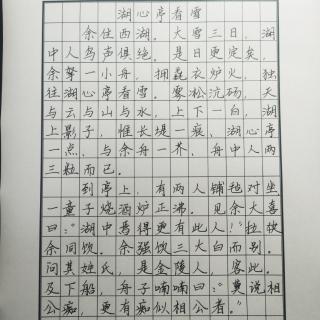 湖心亭看雪
余住西湖。大雪三日，湖
中人鸟声俱绝。是日更定矣，
余挐一小舟，拥毳衣炉火，独
往湖心亭看雪。雾凇沆砀，天
与云与山与水，上下一白，湖
上影子，惟长堤一痕，湖心亭
一点，与余舟一芥，舟中人两
三粒而已。
到亭上，有两人铺毡对坐
一童子烧酒炉正沸。见余大喜
曰："湖中焉得更有此人！"拉饮
余同饮。余强饮三大白而别。
问其姓氏，是金陵人，客此。
及下船，舟子喃喃曰："莫说相
公痴，更有痴似相公者。"